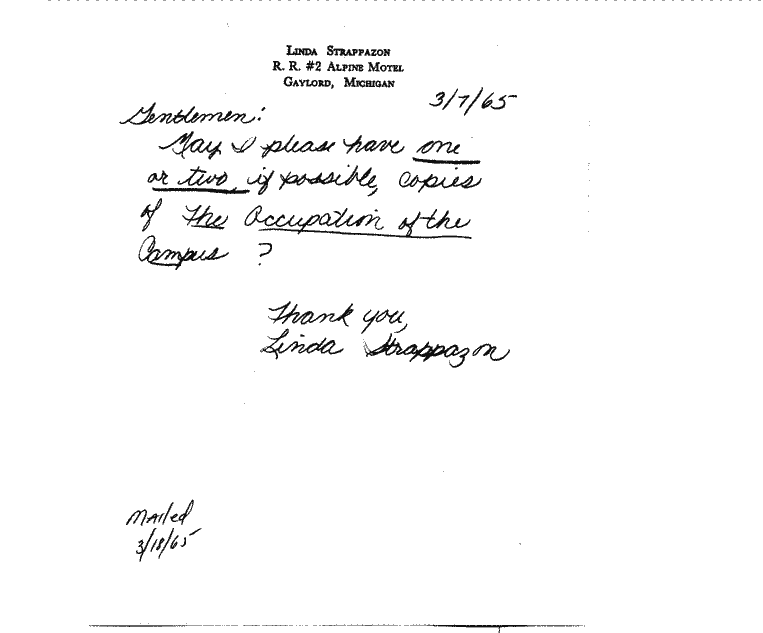 LINDA STRAPPAZON
R. R. #2 ALPINE MOTEL
GAYLORD, MICHIGAN
3/7/65
Gentlemen:
May I please have one
or two, if possible, copies
of The Occupation of the
Campus ?
Thank you,
Linda Strappazon
Mailed
3/18/65